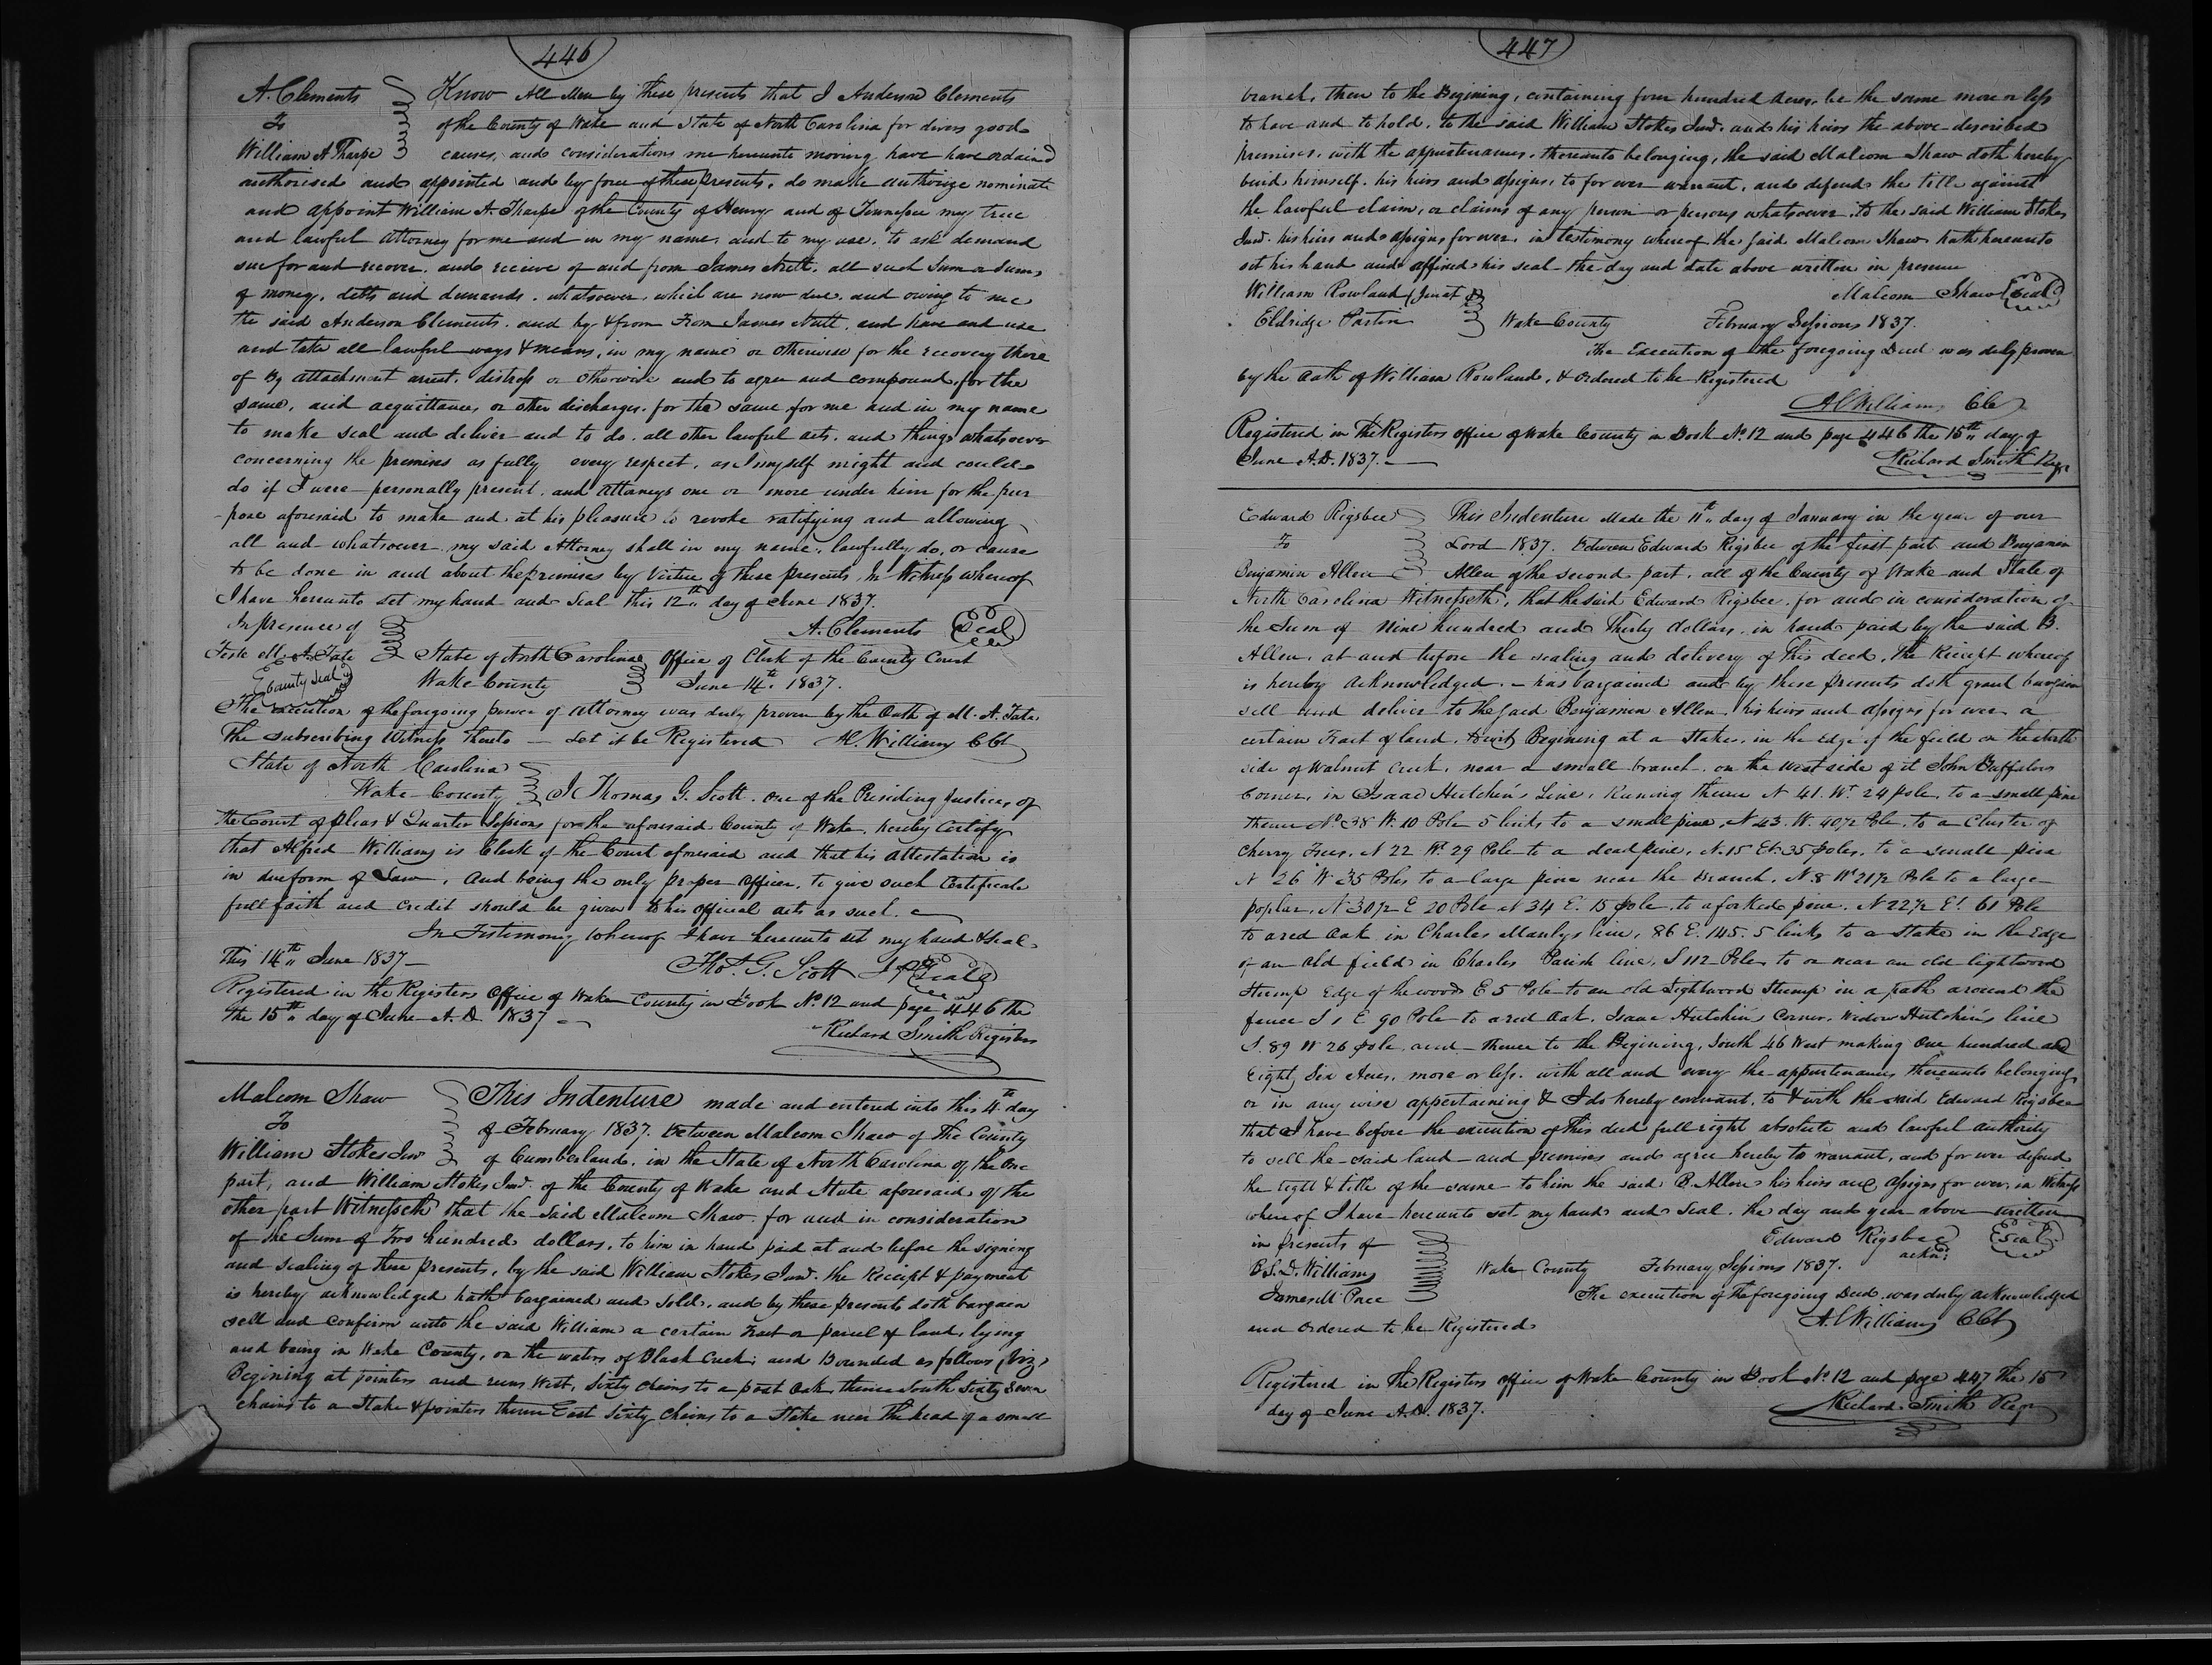 446
A. Clements Know All Men by these presents that I Anderson Clements
To of the County of Wake and State of North Carolina for divers good
William A Tharpe causes, and considerations me hereunto moving have have ordained
authorised and appointed and by force of these presents, do make authorize nominate
and appoint William A. Tharpe of the County of Henry and of Tennessee my true
and lawful attorney for me and in my name, and to my use, to ask demand
sue for and recover, and recieve of and from James Nutt, all such Sum or Sums
of money, debts and demands, whatsoever, which are now due, and owing to me
the said Anderson Clements, and by & from From James Nutt, and have and use
and take all lawful ways & means, in my name or otherwise for the recovery there
of By attachment arrest, distress or otherwise and to agree and compound, for the
same, and acquittances or other discharges for the same for me and in my name
to make seal and deliver and to do all other lawful acts, and things whatsoever
concerning the premises as fully every respect, as I myself might and could
do if I were personally present, and attorneys one or more under him for the pur
-pose aforesaid to make and at his pleasure to revoke ratifying and allowing
all and whatsoever my said Attorney shall in my name, lawfully do, or cause
to be done in and about the premises by Virtue of these presents, In Witness whereof
I have hereunto set my hand and Seal this 12th day of June 1837.
In presence of A. Clements Seal
Teste M. A. Tate State of North Carolina Office of Clerk of the County Court
County Seal Wake County June 14th 1837.
The execution of the foregoing power of attorney was duly proven by the Oath of M. A. Tate
The subscribing Witness thereto — Let it be Registered Al. Williams CCt
State of North Carolina
Wake County I Thomas G. Scott. one of the Presiding Justices of
the Court of pleas & Quarter Sessions for the aforesaid County of Wake, hereby Certify
that Alfred Williams is Clerk of the Court aforesaid and that his attestation is
in due form of Law, And being the only proper officer, to give such Certificate
full faith and credit should be given to his official acts as such.
In Testimony whereof I have hereunto set my hand & Seal
This 14th June 1837 — Tho. G. Scott JP Seal
Registered in the Registers Office of Wake County in Book No. 12 and page 446 the
the 15th day of June A.D. 1837
Richard Smith Register
Malcom Shaw This Indenture made and entered into this 4th day
To of February 1837. between Malcom Shaw of The County
William Stokes Junr of Cumberland, in the State of North Carolina of the One
part, and William Stokes Junr. of the County of Wake and State aforesaid of the
other part Witnesseth that the Said Malcom Shaw for and in consideration
of the Sum of Two hundred dollars, to him in hand paid at and before the signing
and sealing of these presents, by the said William Stokes Junr. the Receipt & payment
is hereby acknowledged hath bargained and sold, and by these presents doth bargain
sell and confirm unto the said William a certain Tract or parcel of land, lying
and being in Wake County, on the waters of Black Creek; and Bounded as follows (Viz)
Begining at pointers and runs West, Sixty chains to a post Oak thence South Sixty Seven
chains to a Stake & pointers thence East Sixty chains to a Stake near The head of a small
447
branch, then to the Begining, containing four hundred Acres, be the same more or less
to have and to hold, to the said William Stokes Junr. and his heirs the above described
premises, with the appurtenances, thereunto belonging, the said Malcom Shaw doth hereby
bind himself, his heirs and assigns, to for ever warrant, and defend the title against
the lawful claim, or claims of any person or persons whatsoever, to the said William Stokes
Junr. his heirs and assigns for ever, in testimony whereof the said Malcom Shaw hath hereunto
set his hand and affixed his seal the day and date above written in presence
William Rowland (Jurat Malcom Shaw Seal
Eldridge Partin Wake County February Sessions 1837.
The Execution of the foregoing Deed was duly proven
by the Oath of William Rowland, & Ordered to be Registered
Al Williams Clk
Registered in The Registers office of Wake County in Book No. 12 and page 446 the 15th day of
June A.D. 1837. — Richard Smith Regr
Edward Rigsbee This Indenture Made the 11th day of January in the year of our
To Lord 1837. Between Edward Rigsbee of the first part and Benjamin
Benjamin Allen Allen of the second part, all of the County of Wake and State of
North Carolina Witnesseth, that the said Edward Rigsbee, for and in consideration of
the Sum of Nine hundred and Thirty dollars, in hand paid by the said B.
Allen, at and before the sealing and delivery of This deed, the Receipt whereof
is hereby acknowledged, — has bargained and by these presents doth grant bargain
sell and deliver to the said Benjamin Allen, his heirs and assigns for ever a
certain Tract of land, towit, Begining at a Stake, in the edge of the field on the North
side of Walnut Creek, near a small branch, on the west side of it John Buffalows
Corner, in Isaac Hutchin's Line, Running thence N 41. Wt. 24 pole, to a small pine
thence No. 38 W. 10 Pole 5 links to a small pine, N 43. W. 40½ Pole, to a Cluster of
Cherry Trees, N 22 Wt. 29 Pole to a dead pine, N. 15 Et. 35 poles, to a small pine
N 26 W 35 Poles to a large pine near the Branch, N. 8 Wt 21½ Pole to a large
poplar, N 30½ E 20 Pole N 34 E. 15 pole, to a forked pine. N 22½ Et. 61 Pole
to a red Oak in Charles Manlys line, 86 E. 145. 5 links to a Stake in the Edge
of an old field in Charles Parish line, S 112 Poles to or near an old lightwood
Stump Edge of the woods E 5 Pole to an old Lightwood Stump in a path around the
fence S 1 E 90 Pole to a red Oak, Isaac Hutchin's Corner, Widow Hutchin's line
S. 89 W 26 pole, and thence to the Begining, South 46 West making One hundred and
Eighty Six Acres, more or less, with all and every the appurtenances thereunto belonging
or in any wise appertaining & I do hereby covenant, to & with the said Edward Rigsbee
that I have before the execution of This deed full right absolute and lawful authority
to sell the said land and premises and agree hereby to warrant, and for ever defend
the right & title of the same to him the said B. Allen his heirs and assigns for ever, in Witness
whereof I have hereunto set my hand and Seal, the day and year above written
in presents of Edward Rigsbee Seal
B. S. D. Williams Wake County February Sessions 1837. ackn.
James M Pace The execution of The foregoing Deed was duly acknowledged
and Ordered to be Registered Al Williams CCt
Registered in The Registers office of Wake County in Book No. 12 and page 447 The 15
day of June A.D. 1837. Richard Smith Regr